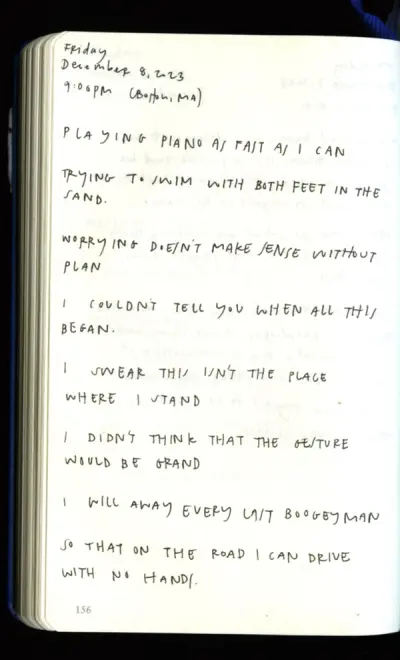 Friday
December 8, 2023
9:06PM (Boston, MA)
PLAYING PIANO AS FAST AS I CAN
TRYING TO SWIM WITH BOTH FEET IN THE
SAND.
WORRYING DOESN'T MAKE SENSE WITHOUT
PLAN
I COULDN'T TELL YOU WHEN ALL THIS
BEGAN.
I SWEAR THIS ISN'T THE PLACE
WHERE I STAND
I DIDN'T THINK THAT THE GESTURE
WOULD BE GRAND
I WILL AWAY EVERY LAST BOOGEYMAN
SO THAT ON THE ROAD I CAN DRIVE
WITH NO HANDS.
156